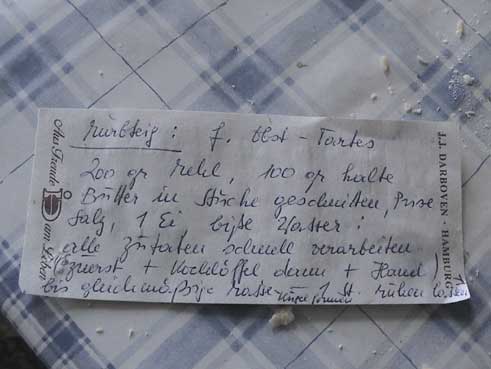 Mürbteig: f. Obst-Tartes
200 gr Mehl, 100 gr kalte
Butter in Stücke geschnitten, Prise
Salz, 1 Ei, bisse Wasser:
alle Zutaten schnell verarbeiten
zuerst + Kochlöffel dann + Hand
bis gleichmäßige Masse 1 St. ruhen lassen
Aus Freude am Leben
J.J. DARBOVEN - HAMBURG 1